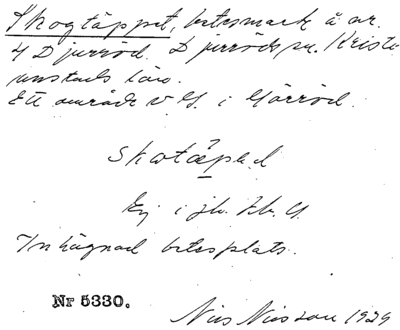 Skogtäppet, betesmark å ar.
4 Djurröd. Djurröds sn. Kristi-
anstads län.
Ett område v G. i Görröd.
skotäpəd
Ej i jb. Kb. G.
Inhägnad betesplats.
Nr 5330.
Nils Nilsson 1929